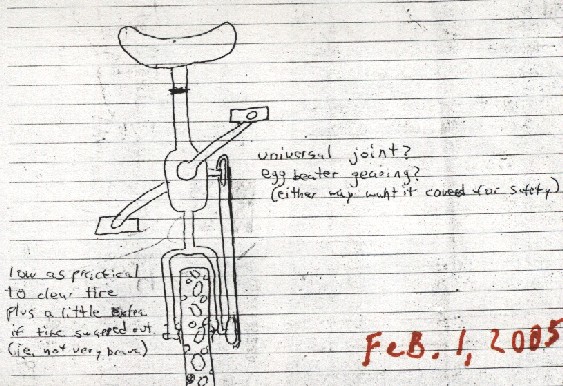 universal joint?
egg beater gearing?
(either way want it covered for safety)
low as practical
to clear tire
plus a little
if tire swapped out
(ie. not very brave)
FeB. 1, 2005